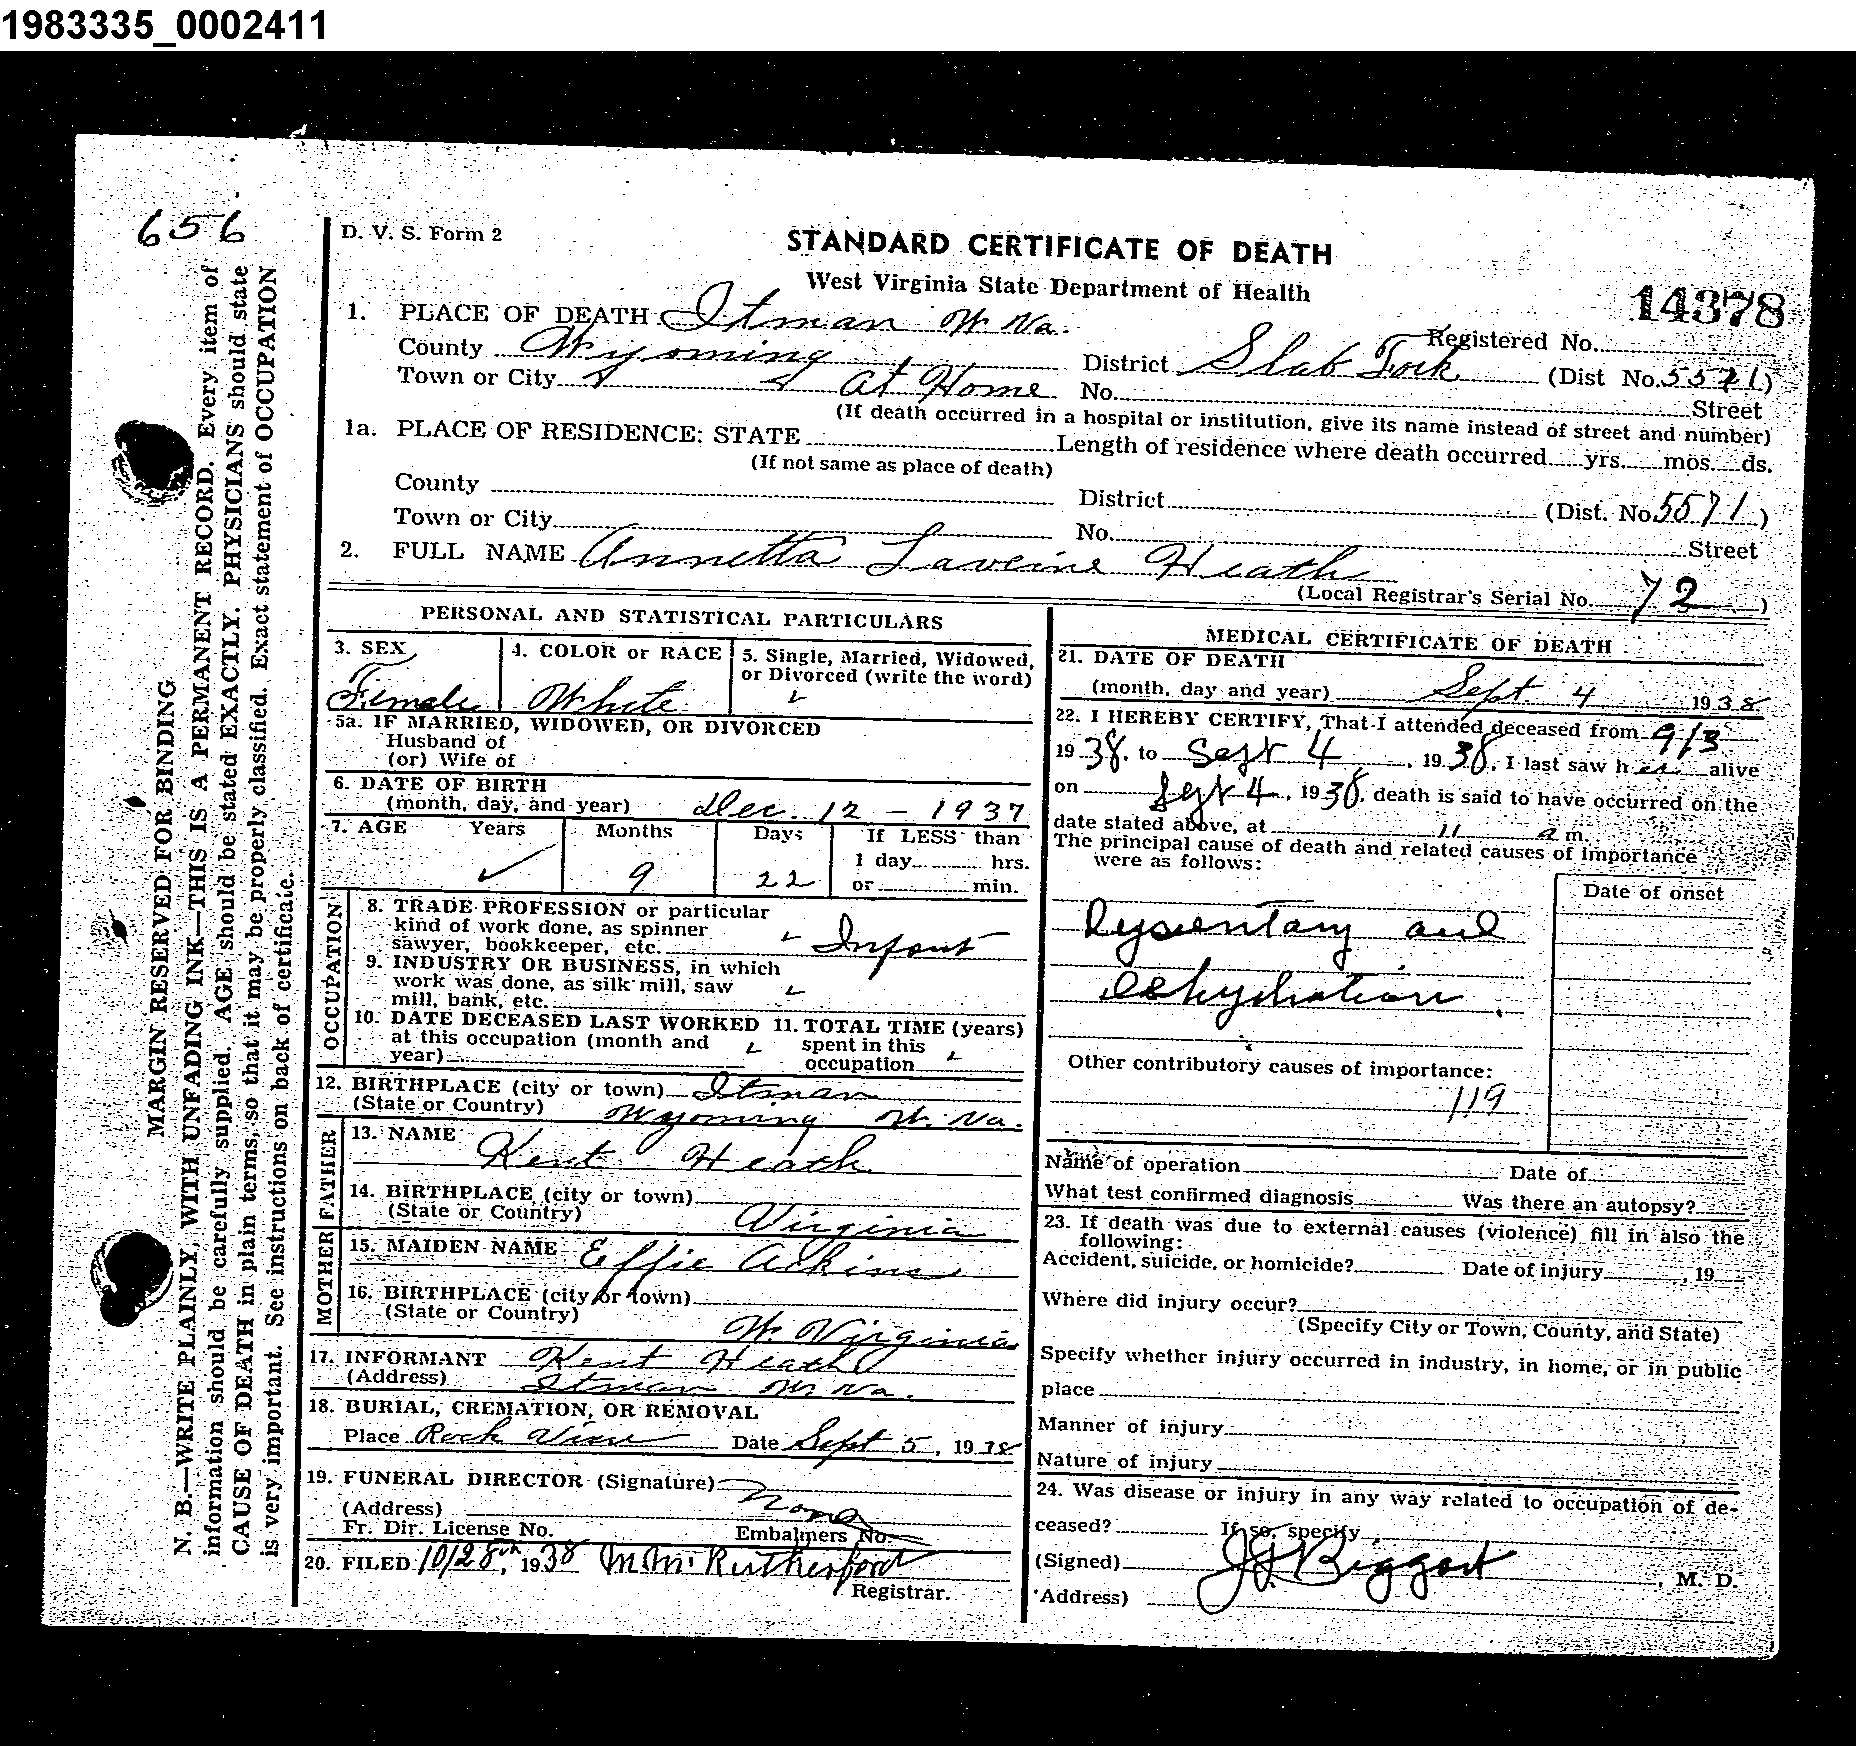 1983335_0002411
656
D. V. S. Form 2
STANDARD CERTIFICATE OF DEATH
West Virginia State Department of Health
14378
1. PLACE OF DEATH Itman W. Va.
Registered No.
County Wyoming District Slab Fork (Dist No. 5571)
Town or City at Home No. Street
(If death occurred in a hospital or institution, give its name instead of street and number)
1a. PLACE OF RESIDENCE: STATE Length of residence where death occurred yrs. mos. ds.
(If not same as place of death)
County District (Dist. No. 5571)
Town or City No. Street
2. FULL NAME Annetta Laveine Heath
(Local Registrar's Serial No. 72)
PERSONAL AND STATISTICAL PARTICULARS
3. SEX Female
4. COLOR or RACE White
5. Single, Married, Widowed, or Divorced (write the word)
5a. IF MARRIED, WIDOWED, OR DIVORCED
Husband of
(or) Wife of
6. DATE OF BIRTH
(month, day, and year) Dec. 12 - 1937
7. AGE Years Months Days If LESS than
1 day hrs.
9 22 or min.
OCCUPATION
8. TRADE PROFESSION or particular
kind of work done, as spinner
sawyer, bookkeeper, etc. Infant
9. INDUSTRY OR BUSINESS, in which
work was done, as silk mill, saw
mill, bank, etc.
10. DATE DECEASED LAST WORKED
at this occupation (month and
year)
11. TOTAL TIME (years)
spent in this
occupation
12. BIRTHPLACE (city or town) Itman
(State or Country) Wyoming W. Va.
FATHER
13. NAME Kent Heath
14. BIRTHPLACE (city or town)
(State or Country) Virginia
MOTHER
15. MAIDEN NAME Effie Adkins
16. BIRTHPLACE (city or town)
(State or Country) W. Virginia
17. INFORMANT Kent Heath
(Address) Itman W. Va.
18. BURIAL, CREMATION, OR REMOVAL
Place Rock View Date Sept 5, 1938
19. FUNERAL DIRECTOR (Signature) None
(Address)
Fr. Dir. License No. Embalmers No.
20. FILED 10/28th, 1938 M. M. Rutherford
Registrar.
MEDICAL CERTIFICATE OF DEATH
21. DATE OF DEATH
(month, day and year) Sept 4 1938
22. I HEREBY CERTIFY, That I attended deceased from 9/3
1938, to Sept 4, 1938, I last saw her alive
on Sept 4, 1938, death is said to have occurred on the
date stated above, at 11 a m.
The principal cause of death and related causes of importance
were as follows:
Date of onset
Dysentary and
dehydration
Other contributory causes of importance:
119
Name of operation Date of
What test confirmed diagnosis Was there an autopsy?
23. If death was due to external causes (violence) fill in also the
following:
Accident, suicide, or homicide? Date of injury , 19
Where did injury occur?
(Specify City or Town, County, and State)
Specify whether injury occurred in industry, in home, or in public
place
Manner of injury
Nature of injury
24. Was disease or injury in any way related to occupation of de-
ceased? If so, specify
(Signed) J. F. Biggart, M. D.
(Address)
MARGIN RESERVED FOR BINDING
N. B.—WRITE PLAINLY, WITH UNFADING INK—THIS IS A PERMANENT RECORD. Every item of
information should be carefully supplied. AGE should be stated EXACTLY. PHYSICIANS should state
CAUSE OF DEATH in plain terms, so that it may be properly classified. Exact statement of OCCUPATION
is very important. See instructions on back of certificate.